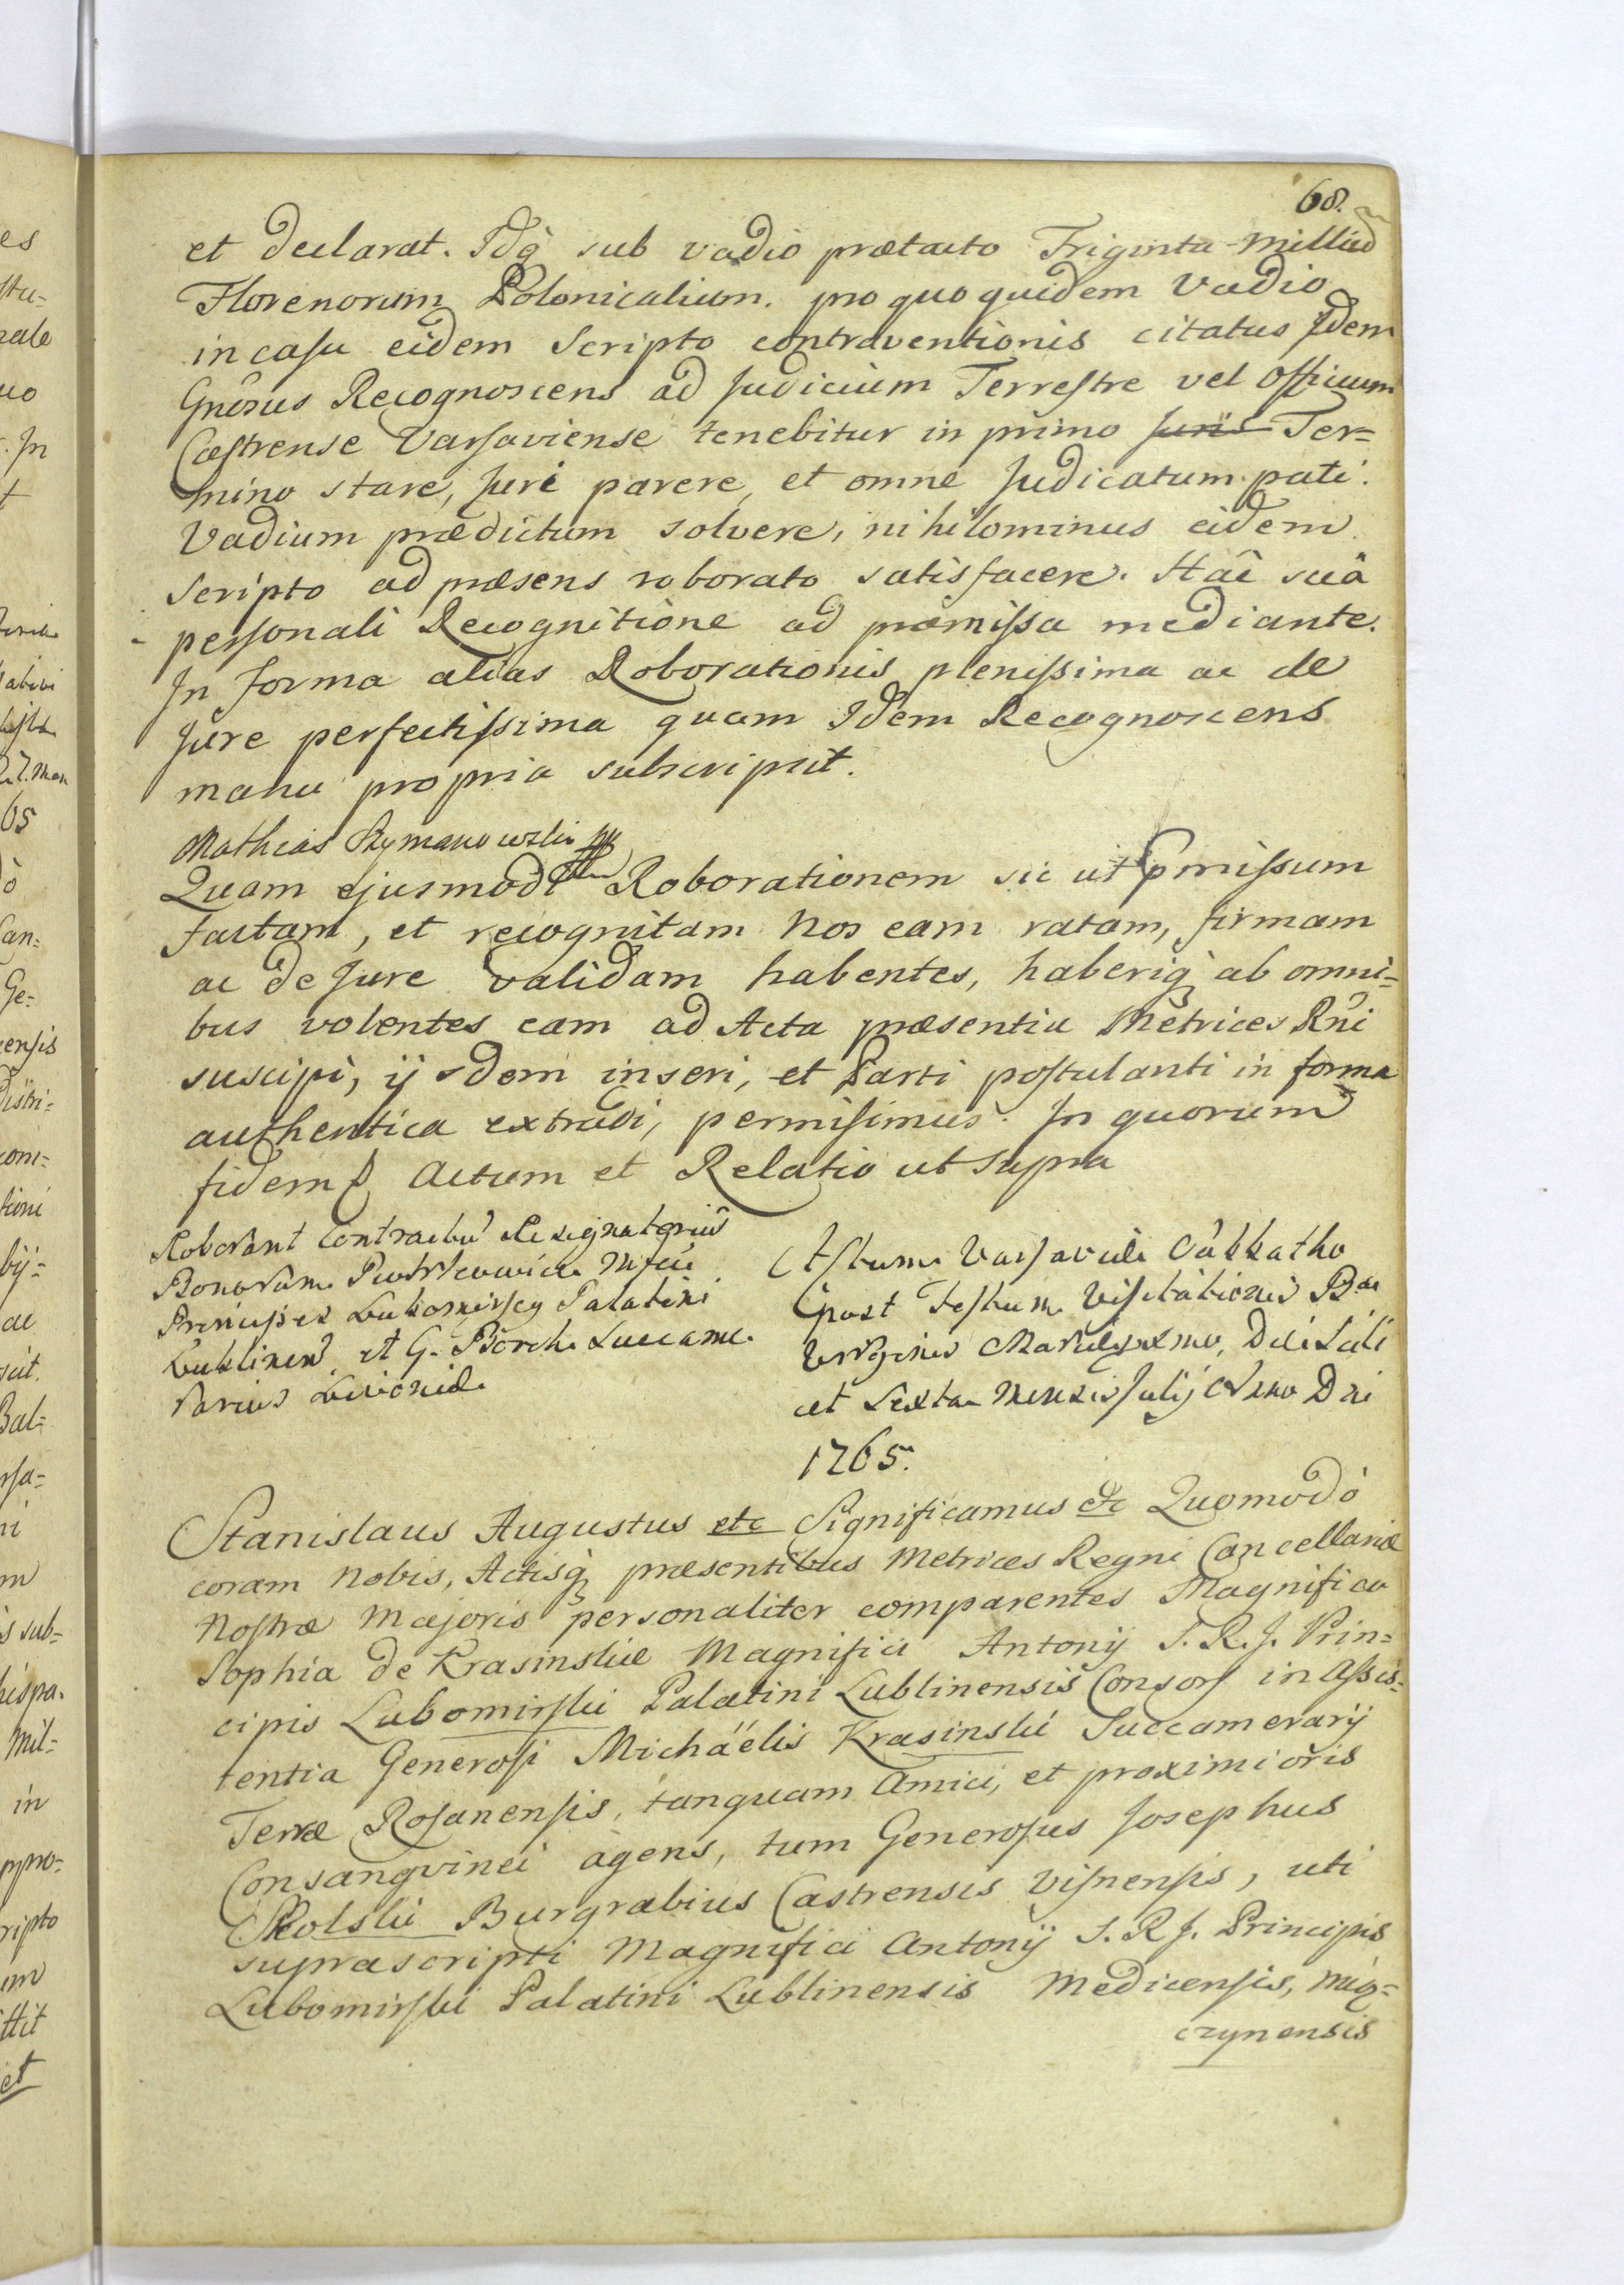 68.
et declarat. Idq̀ sub vadio prætacto Triginta Milliũ
Florenorum Polonicalium. pro quo quidem Vadio
in casu eidem Scripto contraventionis citatus Idem
Gnõsus Recognoscens ad Judicium Terrestre vel Officium
Castrense Varsaviense tenebitur in primo Juris Ter=
mino stare, Juri parere, et omne Judicatum pati.
Vadium prædictum solvere, nihilominus eidem
Scripto ad præsens roborato satisfacere. Hac suâ
personali Recognitione ad præmissa mediante.
In forma alias Roborationis plenissima ac de
Jure perfectissima quam Idem Recognoscens
manu propria subscripsit.
Mathias Szymanowski mp
Quam ejusmodi Roborationem sic ut pmissum
factam, et recognitam Nos eam ratam, firmam
ac de Jure validam habentes, haberiq̀ ab omni=
bus volentes eam ad Acta præsentia Metrices Rñi
suscipi, ijsdem inseri, et Parti postulanti in forma
authentica extradi, permisimus. In quorum
fidem Actum et Relatio ut supra
Roborant Contractũ Resignatoriũ
Bonorum Piotrkowice
Principes Lubomirscy Palatini
Lublinen, et G. Borch Succame
rarius Livoniæ
Actum Varsaviæ Sabbatho
post Festum Visitationis Bae
Virginis Mariæ
et Sexta Mensis Julij Anno Dni
1765.
Stanislaus Augustus etc Significamus etc Quomodò
coram Nobis, Actisq̀ præsentibus Metrices Regni Cancellariæ
Nostræ Majoris personaliter comparentes Magnifica
Sophia de Krasinskie Magnifici Antonij S. R. J. Prin=
cipis Lubomirski Palatini Lublinensis Consors in Assis=
tentia Generosi Michäelis Krasinski Succamerarij
Terræ Rosanensis, tanquam Amici, et proximioris
Consangvinei agens, tum Generosus Josephus
Skolski Burgrabius Castrensis Visnensis, uti
suprascripti Magnifici Antonij S. R. J. Principis
Lubomirski Palatini Lublinensis Medicensis, Miq=
czynensis